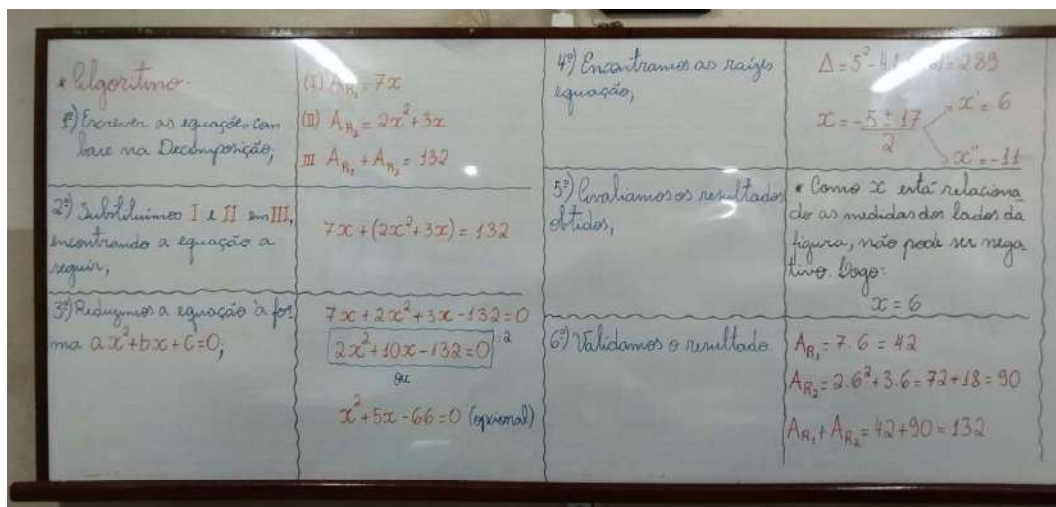 * Algoritmo.
1º) Escrever as equações com
base na Decomposição;
(I) A_R₁ = 7x
(II) A_R₂ = 2x² + 3x
III A_R₁ + A_R₂ = 132
2º) Substituímos I e II em III,
encontrando a equação a
seguir;
7x + (2x² + 3x) = 132
3º) Reduzimos a equação à for
ma ax² + bx + c = 0;
7x + 2x² + 3x - 132 = 0
2x² + 10x - 132 = 0 :2
ou
x² + 5x - 66 = 0 (opcional)
4º) Encontramos as raízes
equação;
Δ = 5² - 4.1 = 289
x = -5 ± 17
2
x' = 6
x'' = -11
5º) Avaliamos os resultados
obtidos;
* Como x está relaciona
do as medidas dos lados da
figura, não pode ser nega
tivo. Logo:
x = 6
6º) Validamos o resultado
A_R₁ = 7.6 = 42
A_R₂ = 2.6² + 3.6 = 72 + 18 = 90
A_R₁ + A_R₂ = 42 + 90 = 132